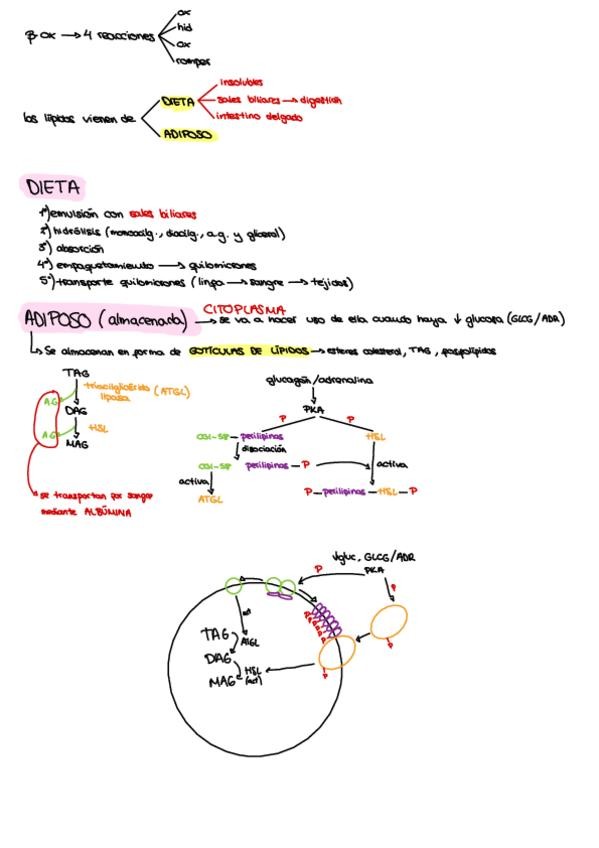 β ox → 4 reacciones
ox
hid
ox
romper
los lípidos vienen de
DIETA
insolubles
sales biliares → digestión
intestino delgado
ADIPOSO
DIETA
1º) emulsión con sales biliares
2º) hidrólisis (monoacilg., diacilg., a.g. y glicerol)
3º) absorción
4º) empaquetamiento → quilomicrones
5º) transporte quilomicrones (linfa → sangre → tejidos)
CITOPLASMA
ADIPOSO (almacenada) → se va a hacer uso de ella cuando haya ↓ glucosa (GLCG/ADR)
↳ Se almacenan en forma de GOTÍCULAS DE LÍPIDOS → esteres colesterol, TAG, fosfolípidos
TAG
triacilglicérido (ATGL)
lipasa
AG
DAG
HSL
AG
MAG
se transportan por sangre
mediante ALBÚMINA
glucagón/adrenalina
PKA
P P
CGI-58 - perilipinas
HSL
disociación
CGI-58 perilipinas - P
activa
activa
ATGL
P - perilipinas - HSL - P
↓gluc, GLCG/ADR
PKA
P
P
P
P
P
P
P
P
P
act
TAG
ATGL
DAG
HSL
(act)
MAG